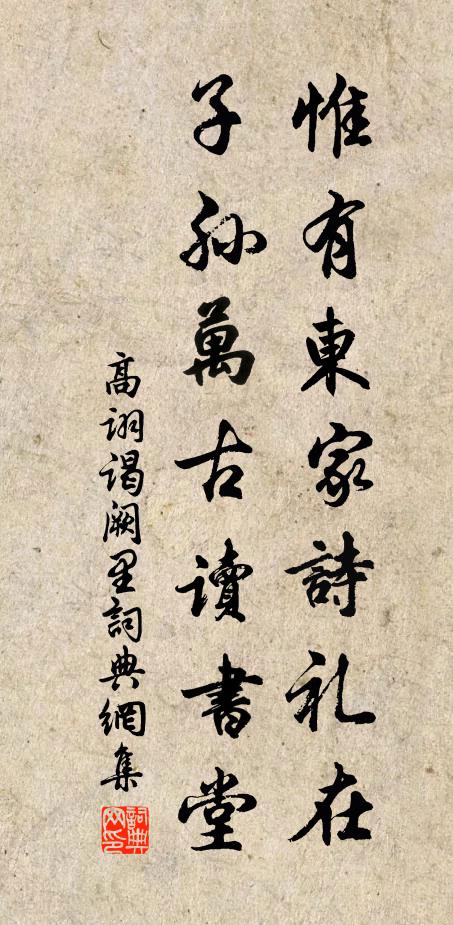 惟有東家詩礼在
子孫萬古讀書堂
高詡謁闕里詞典網集
詞典网印